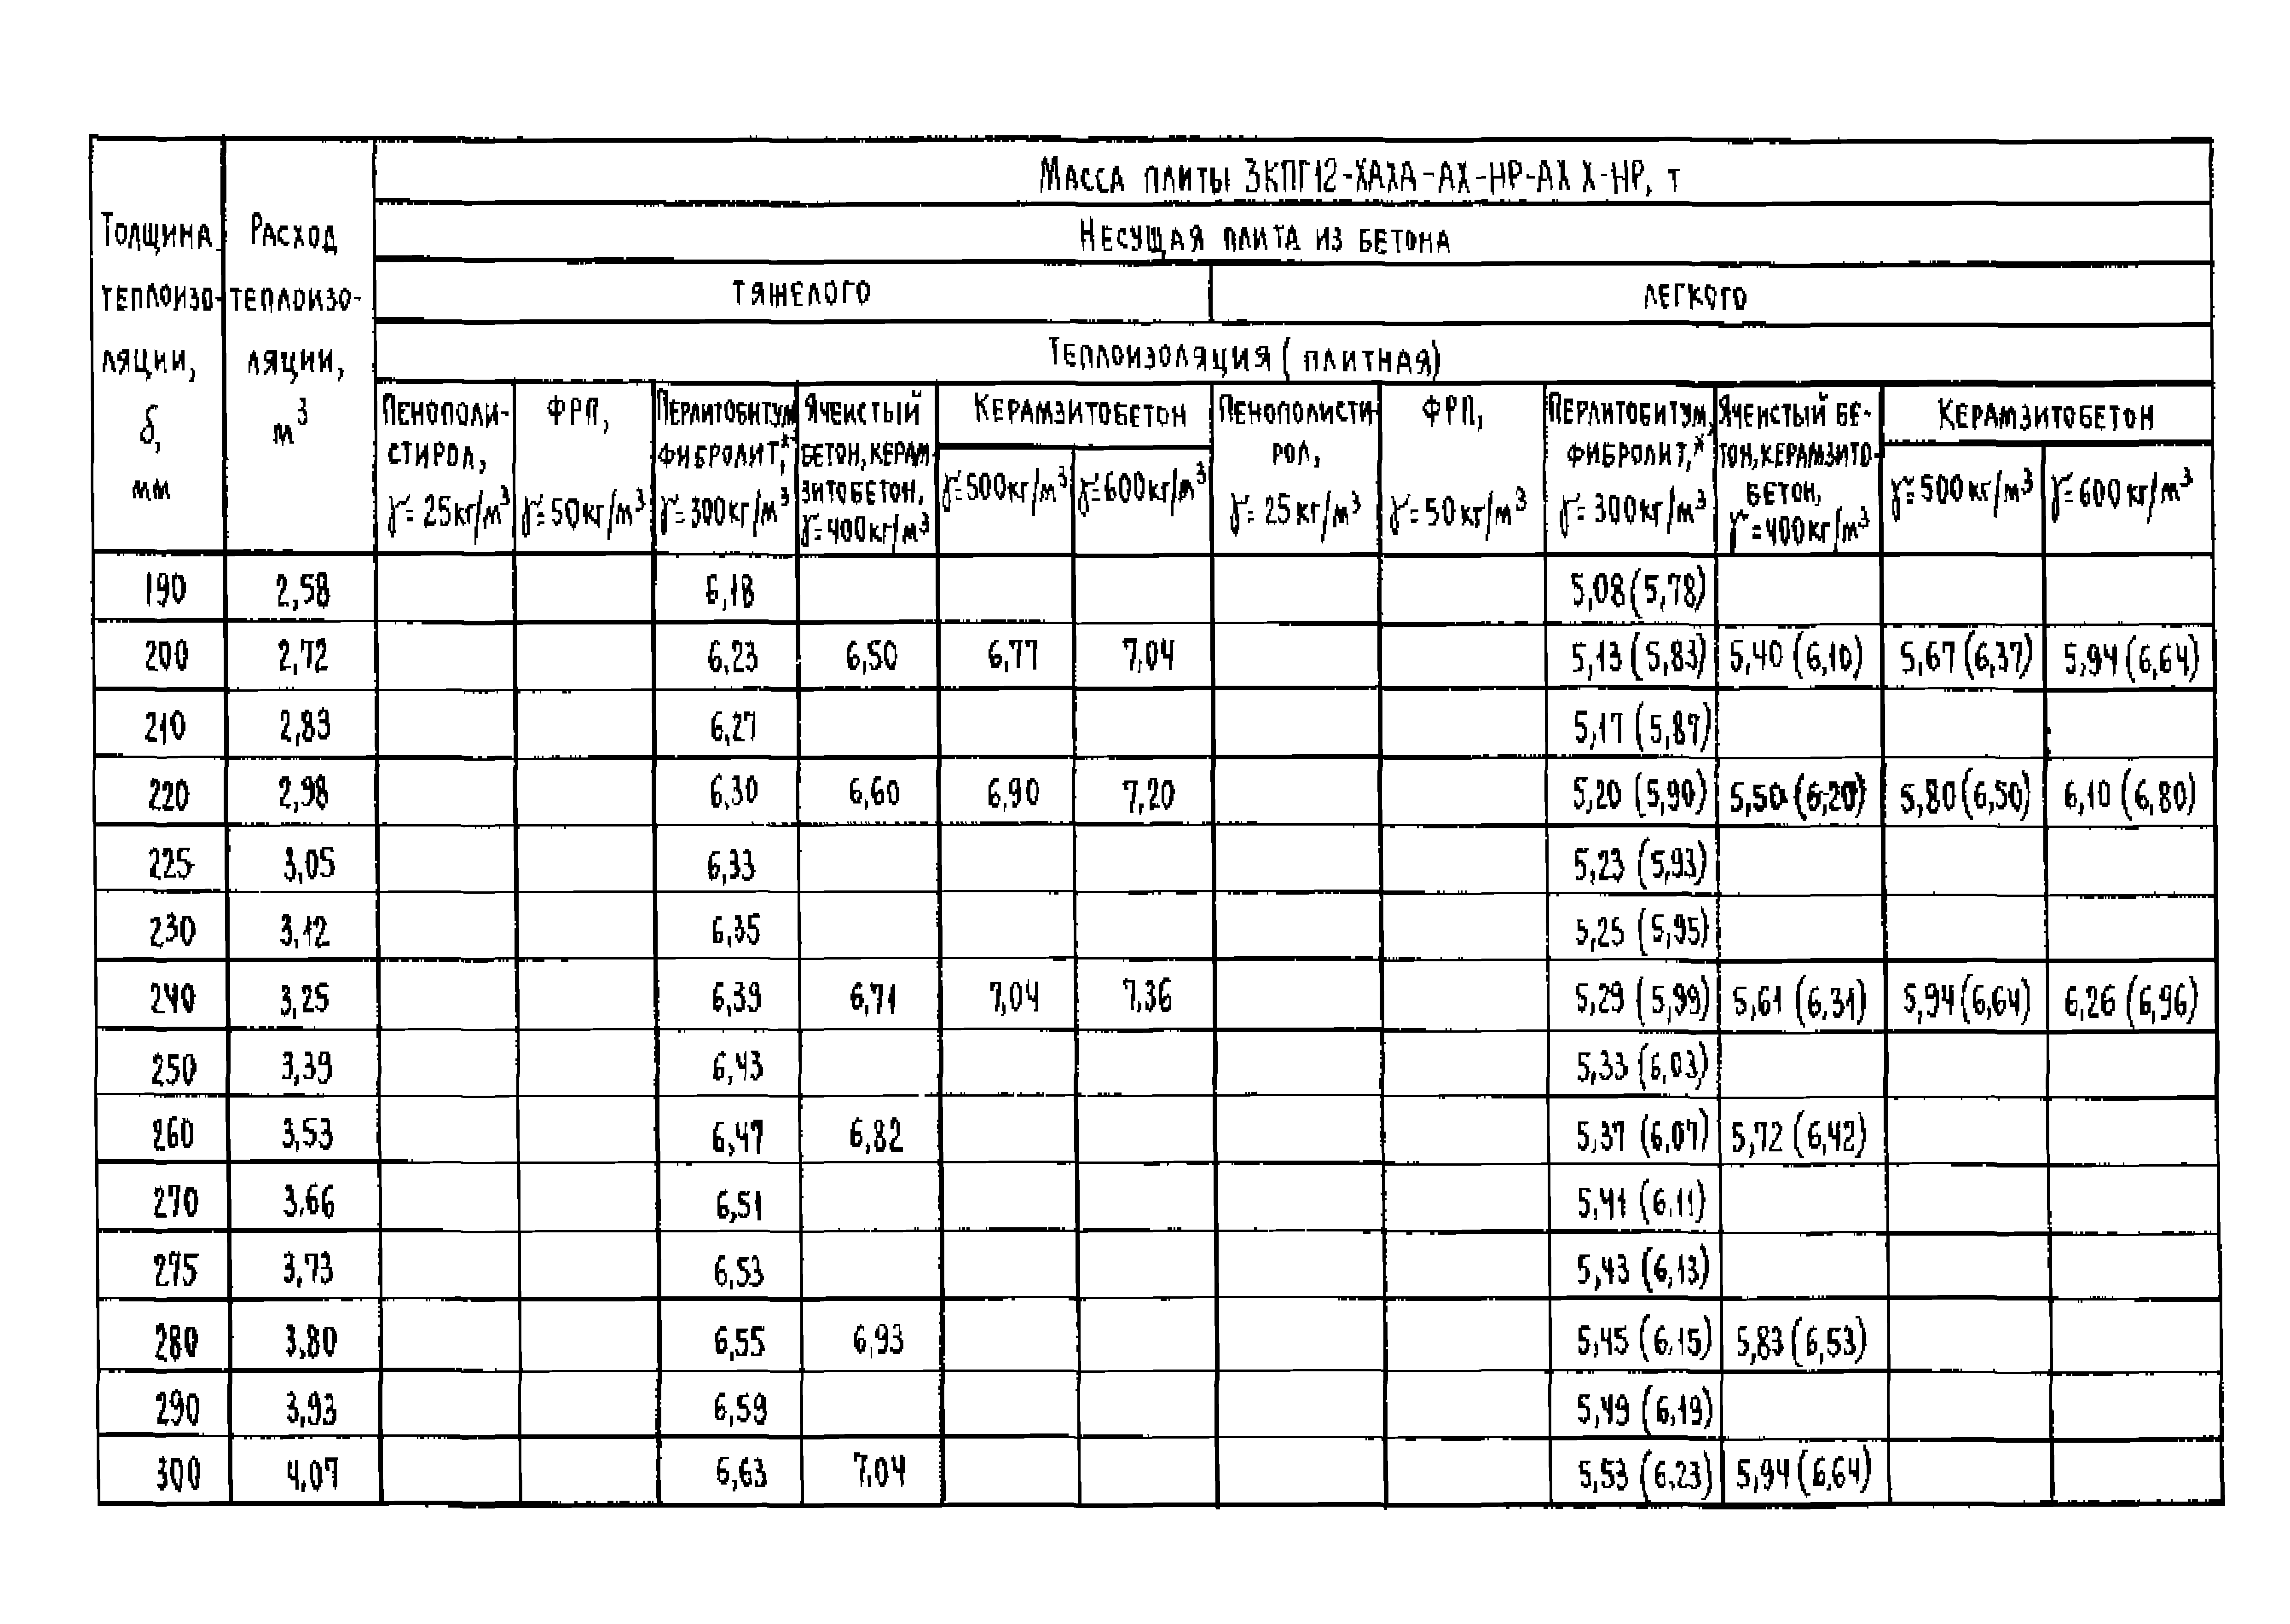 Толщина теплоизоляции, δ, мм
Расход теплоизоляции, м³
Масса плиты 3КПГ12-ХАХА-АХ-НР-АХ Х-НР, т
Несущая плита из бетона
тяжелого
легкого
Теплоизоляция (плитная)
Пенополистирол, γ=25кг/м³
ФРП, γ=50кг/м³
Перлитобитум, фибролит,* γ=300кг/м³
Ячеистый бетон, керамзитобетон, γ=400кг/м³
Керамзитобетон
γ=500кг/м³
γ=600кг/м³
Пенополистирол, γ=25кг/м³
ФРП, γ=50кг/м³
Перлитобитум, фибролит,* γ=300кг/м³
Ячеистый бетон, керамзитобетон, γ=400кг/м³
Керамзитобетон
γ=500кг/м³
γ=600кг/м³
190 2,58 6,18 5,08(5,78)
200 2,72 6,23 6,50 6,77 7,04 5,13(5,83) 5,40(6,10) 5,67(6,37) 5,94(6,64)
210 2,83 6,27 5,17(5,87)
220 2,98 6,30 6,60 6,90 7,20 5,20(5,90) 5,50(6,20) 5,80(6,50) 6,10(6,80)
225 3,05 6,33 5,23(5,93)
230 3,12 6,35 5,25(5,95)
240 3,25 6,39 6,71 7,04 7,36 5,29(5,99) 5,61(6,31) 5,94(6,64) 6,26(6,96)
250 3,39 6,43 5,33(6,03)
260 3,53 6,47 6,82 5,37(6,07) 5,72(6,42)
270 3,66 6,51 5,41(6,11)
275 3,73 6,53 5,43(6,13)
280 3,80 6,55 6,93 5,45(6,15) 5,83(6,53)
290 3,93 6,59 5,49(6,19)
300 4,07 6,63 7,04 5,53(6,23) 5,94(6,64)